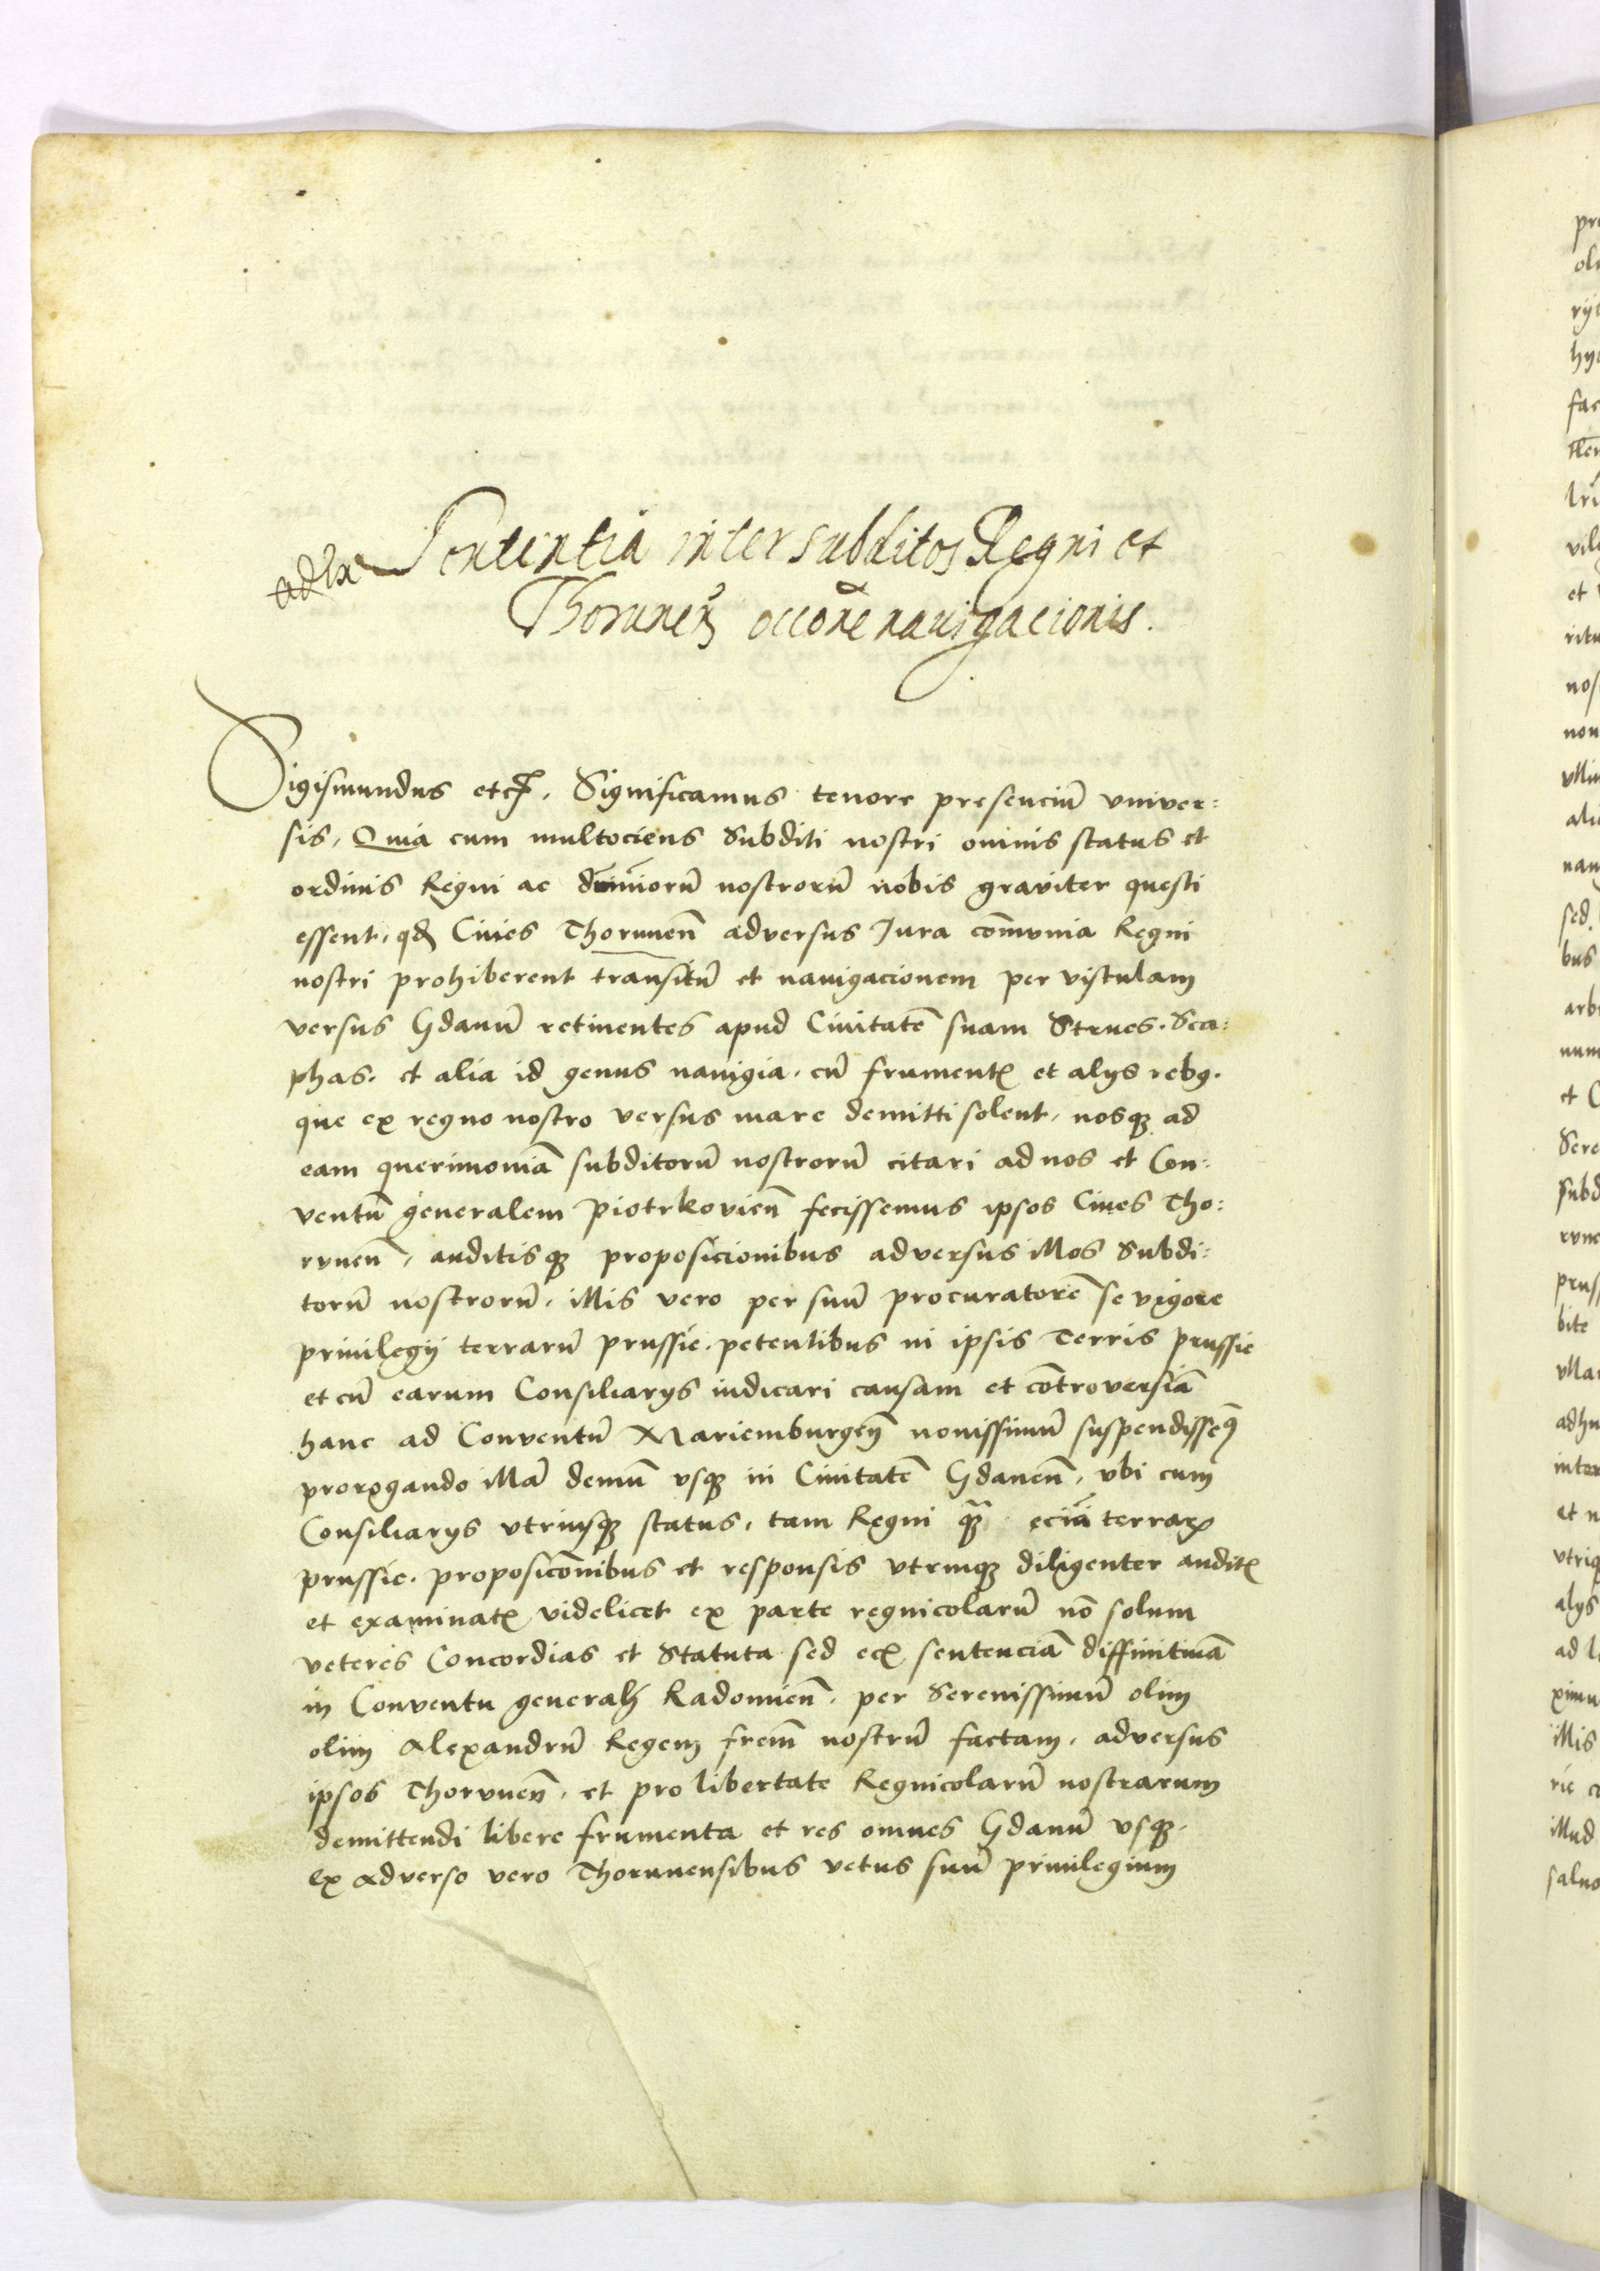 Sententia inter subditos Regni et
Thorunen̄ occoñe nauigacionis.
Sigismundus etc. Significamus tenore presenciū vniver:
sis, Quia cum multociens Subditi nostri omnis status et
ordinis Regni ac dominiorū nostrorū nobis graviter questi
essent, qđ Ciues Thorunen̄ adversus Jura com̄unia Regni
nostri prohiberent transitū et nauigacionem per vistulam
versus Gdanū retinentes apud Ciuitatē suam Strues. Sca:
phas. et alia id genus nauigia. cū frumentꝭ et alijs rebꝫ.
que ex regno nostro versus mare demitti solent, nosqꝫ ad
eam querimoniā subditorū nostrorū citari ad nos et Con:
ventū generalem Piotrkovien̄ fecissemus ipsos Ciues Tho:
rvnen̄, auditisqꝫ proposicionibus adversus illos Subdi:
torū nostrorū, illis vero per suū procuratorē se vigore
priuilegij terrarū prussie. petentibus in ipsis Terris prussie
et cū earum Consiliarijs iudicari causam et cōtroversiā
hanc ad Conventū Mariemburgen̄ nouissimū suspendissemꝰ
prorogando illā demū vsqꝫ in Ciuitatē Gdanen̄, vbi cum
Consiliarijs vtriusqꝫ status, tam Regni qꝫ̄ eciā terrarꝝ
prussie. proposicōnibus et responsis vtrinqꝫ diligenter auditꝭ
et examinatꝭ videlicet ex parte regnicolarū nō solum
veteres Concordias et Statuta sed ecꝭ sentenciā diffinitiuā
in Conventu generali Radomien̄. per Serenissimū olim
olim Alexandrū Regem frem̄ nostrū factam. adversus
ipsos Thorvnen̄. et pro libertate Regnicolarū nostrarum
demittendi libere frumenta et res omnes Gdanū vsqꝫ.
Ex adverso vero Thorunensibus vetus suū priuilegium